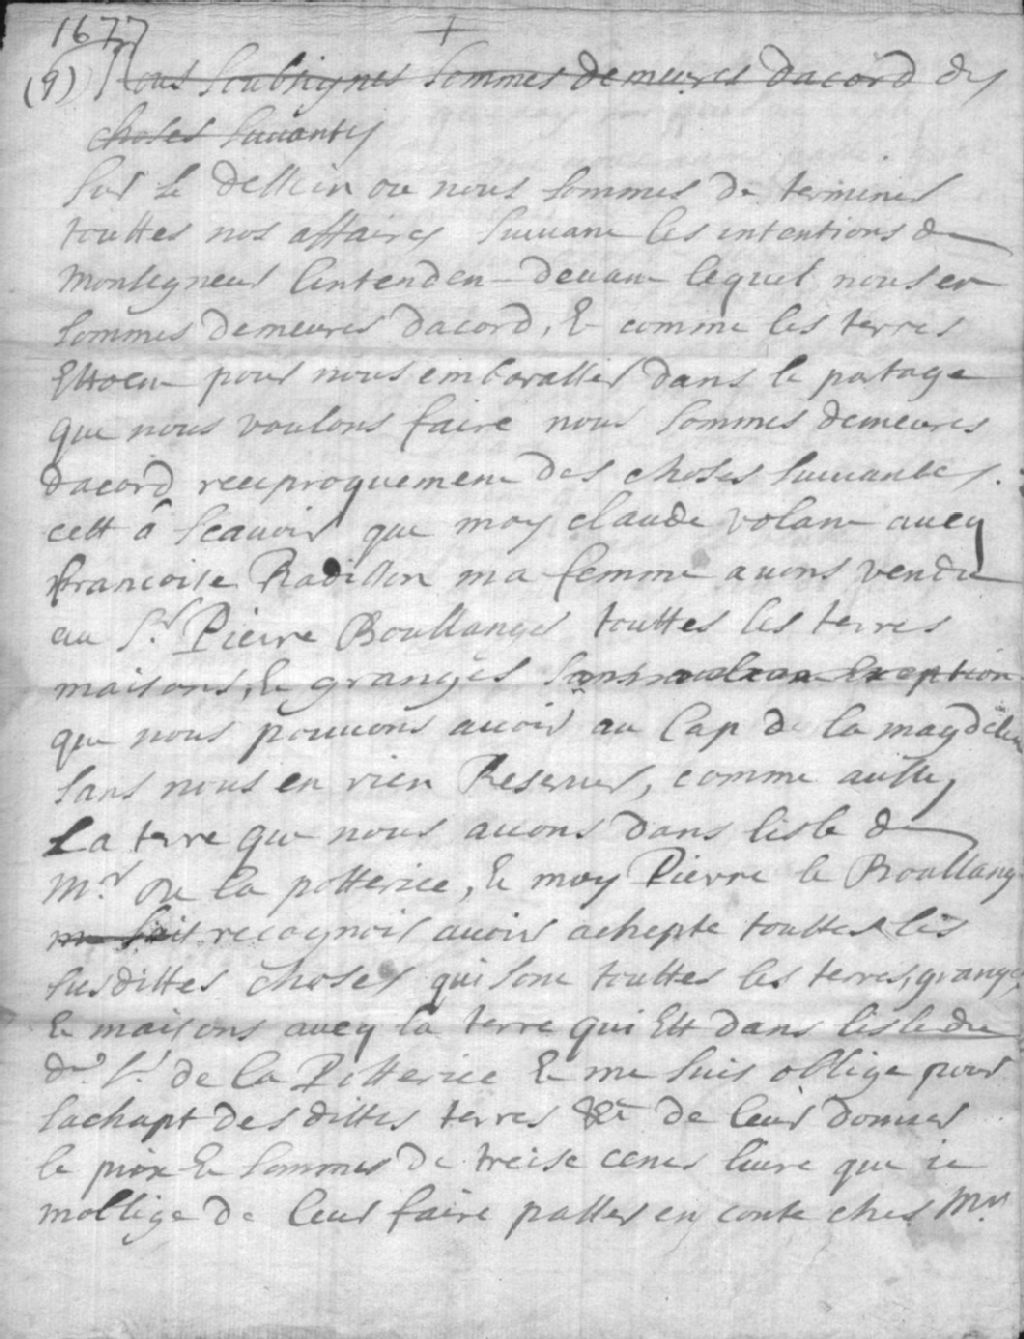 1677
(9) Nous Soubsignes Sommes demeures dacord des
choses Suiuantes
Sur le dessein ou nous sommes de terminer
touttes nos affaires suiuant les intentions de
Monseigneur lintenden deuant lequel nous en
sommes demeures dacord, Et comme les terres
Estoent pour nous embarasser dans le partage
que nous voulons faire nous sommes demeures
dacord reciproquement des choses suiuantes.
cest a scauoir que moy claude volant auecq
francoise Radisson ma femme auons vendu
au Sr. Pierre Boullanger touttes les terres
maisons, Et granges sans aucune Exeption
que nous pouuons auoir au Cap de la magdelen
sans nous en rien Reseruer, comme aussy
La terre que nous auons dans lisle de
Mr. De la potterice, Et moy Pierre le Boullang
me suis recognois auoir achepte touttes les
susdittes choses qui sont touttes les terres, granges
Et maisons auecq la terre qui Est dans lisle du
dt. Sr. de la Potterice Et me suis oblige pour
lachapt des dittes terres &c de leur donner
le prix Et sommes de treise cents liure que ie
moblige de leur faire passer en conte ches Mr.